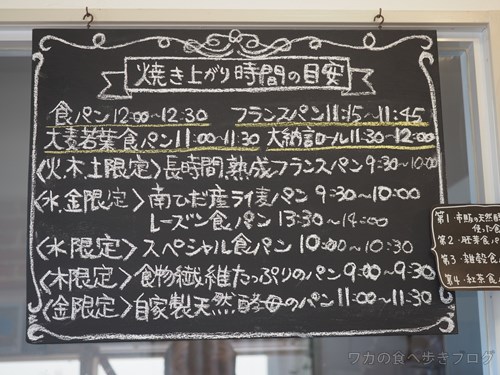 焼き上がり時間の目安
食パン 12:00~12:30 フランスパン 11:15~11:45
大麦若葉食パン 11:00~11:30 大納言ロール 11:30~12:00
〈火.木.土限定〉長時間.熟成フランスパン 9:30~10:00
〈水.金限定〉南ひだ産ライ麦パン 9:30~10:00
レーズン食パン 13:30~14:00
〈水限定〉スペシャル食パン 10:00~10:30
〈木限定〉食物繊維たっぷりのパン 9:00~9:30
〈金限定〉自家製天然酵母のパン 11:00~11:30
第1・市販の天然酵
使った食
第2・胚芽食パ
第3・雑穀食パ
第4・紅茶食パ
ワカの食べ歩きブログ